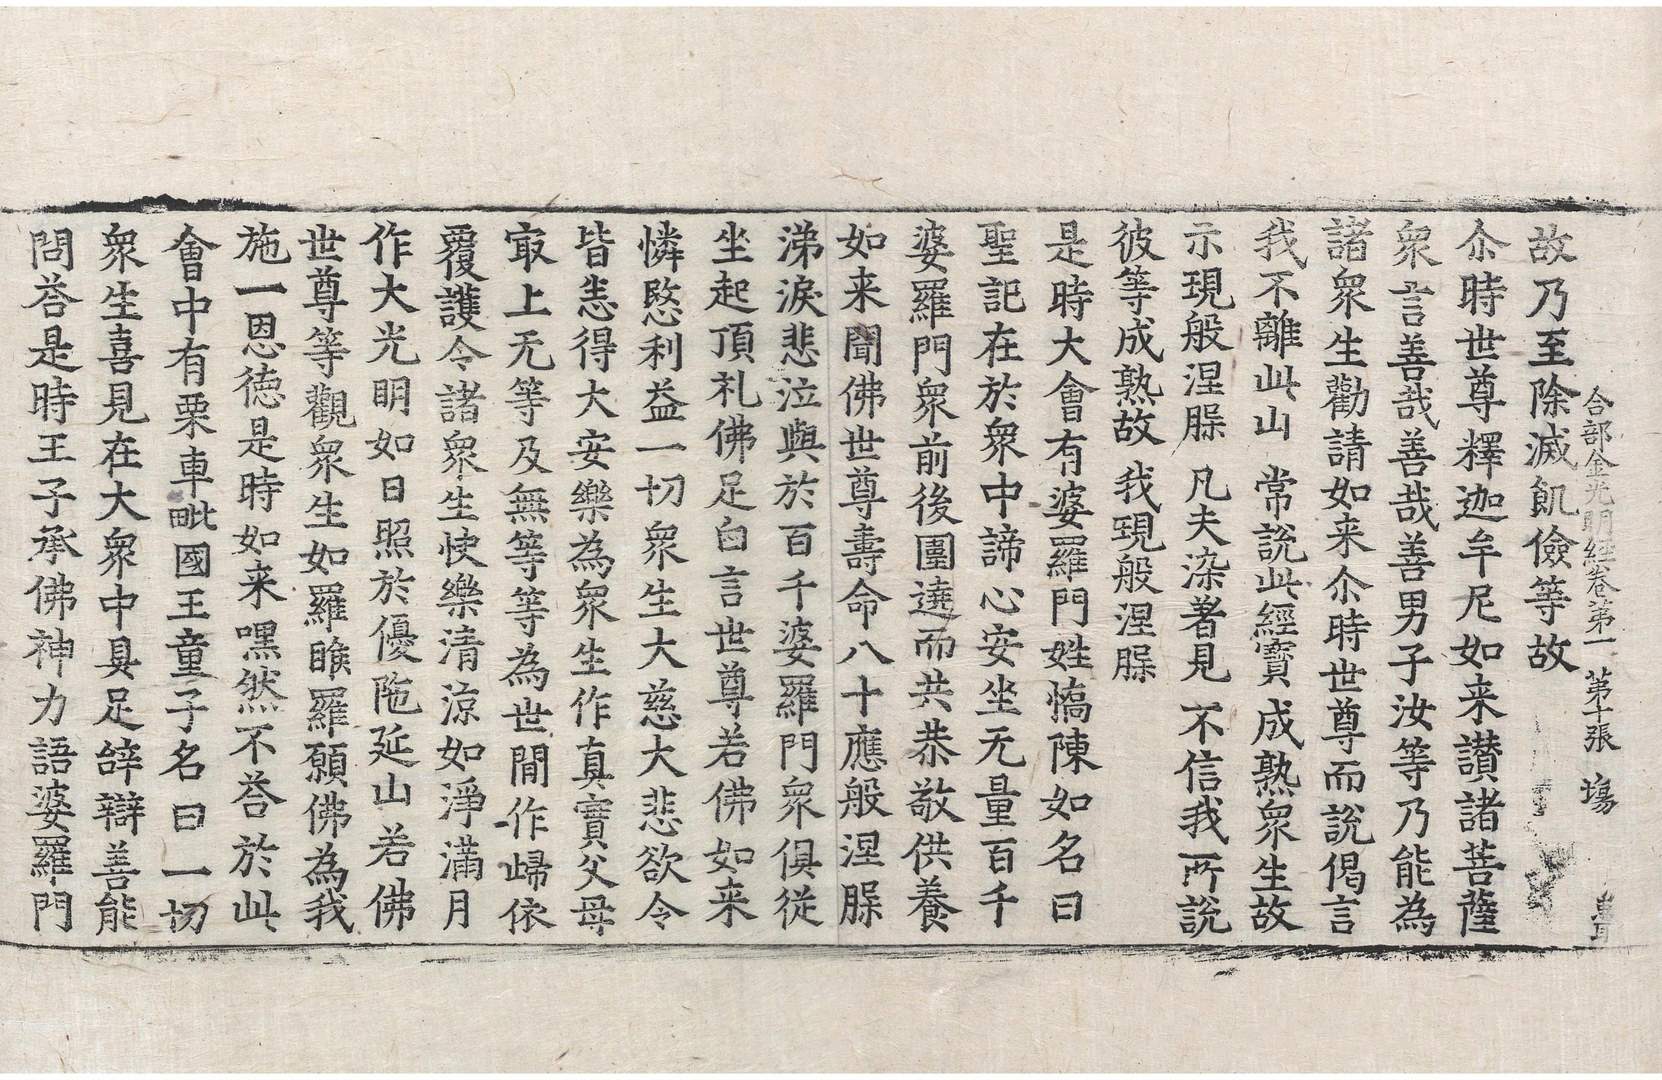 合部金光明經卷第一 第十張 塲
故乃至除滅飢儉等故
尒時世尊釋迦牟尼如来讃諸菩薩
衆言善哉善哉善男子汝等乃能為
諸衆生勸請如来尒時世尊而說偈言
我不離此山 常說此經寶 成熟衆生故
示現般涅槃 凡夫染著見 不信我所說
彼等成熟故 我現般涅槃
是時大會有婆羅門姓憍陳如名曰
聖記在於衆中諦心安坐无量百千
婆羅門衆前後圍遶而共恭敬供養
如来聞佛世尊壽命八十應般涅槃
涕淚悲泣與於百千婆羅門衆俱從
坐起頂礼佛足白言世尊若佛如来
憐愍利益一切衆生大慈大悲欲令
皆悉得大安樂為衆生作真實父母
㝡上无等及無等等為世間作歸依
覆護令諸衆生快樂清涼如淨滿月
作大光明如日照於優陁延山若佛
世尊等觀衆生如羅睺羅願佛為我
施一恩徳是時如来嘿然不荅於此
會中有栗車毗國王童子名曰一切
衆生喜見在大衆中具足辝辯善能
問荅是時王子承佛神力語婆羅門